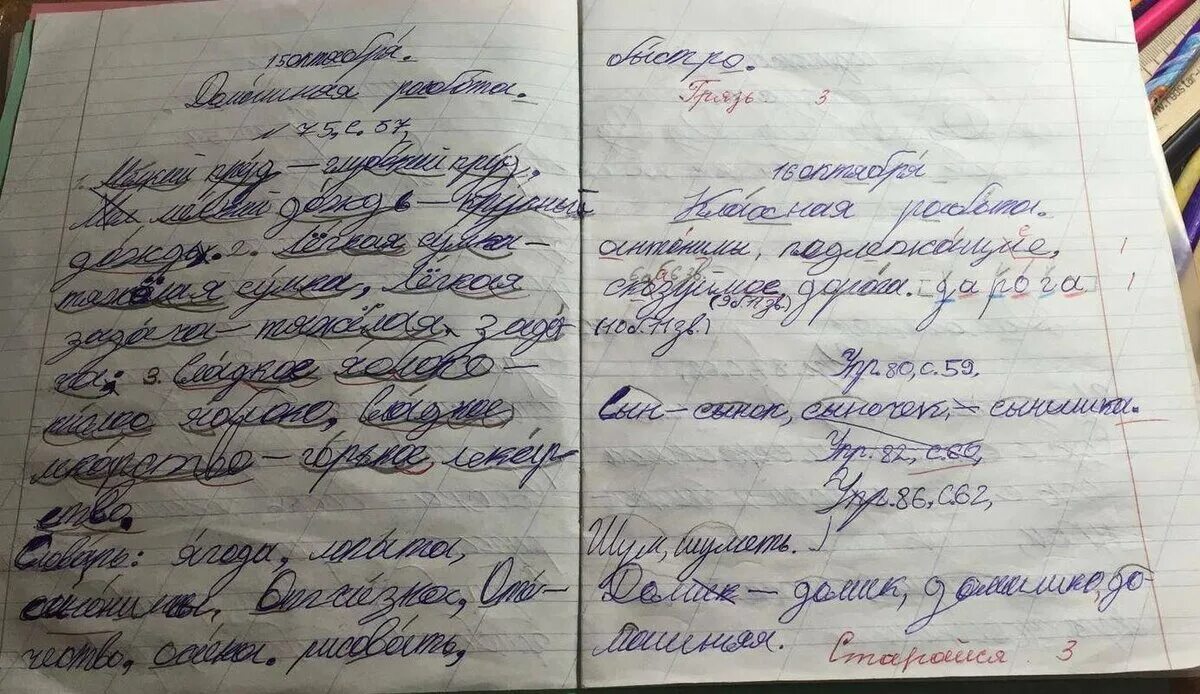 15 октября.
Домашная работа.
№ 75, с. 57,
Мелкий пруд – глубокий пруд,
мелкий дождь – крупный
дождь. 2. Лёгкая сумка –
тяжёлая сумка, лёгкая
задача – тяжёлая зада-
ча; 3. Сладкое яблоко –
кислое яблоко, сладкое
лекарство – горькое лекар-
ство.
Словарь: ягода, лопата,
синонимы, Отчизна, Оте-
чество, осина. рисовать,
быстро.
Грязь 3
16 октября
Классная работа.
антонимы, подлежащие, 1
сказуемое дорога. дарога 1
(9б. 11 зв.)
(10б. 11 зв.)
Упр. 80, с. 59.
Сын – сынок, сыночек, – сынишка.
Упр. 82, с. 60,
Упр. 86, с. 62,
Шум, шуметь.
Домик – домик, домишко, до-
машняя.
Старайся 3